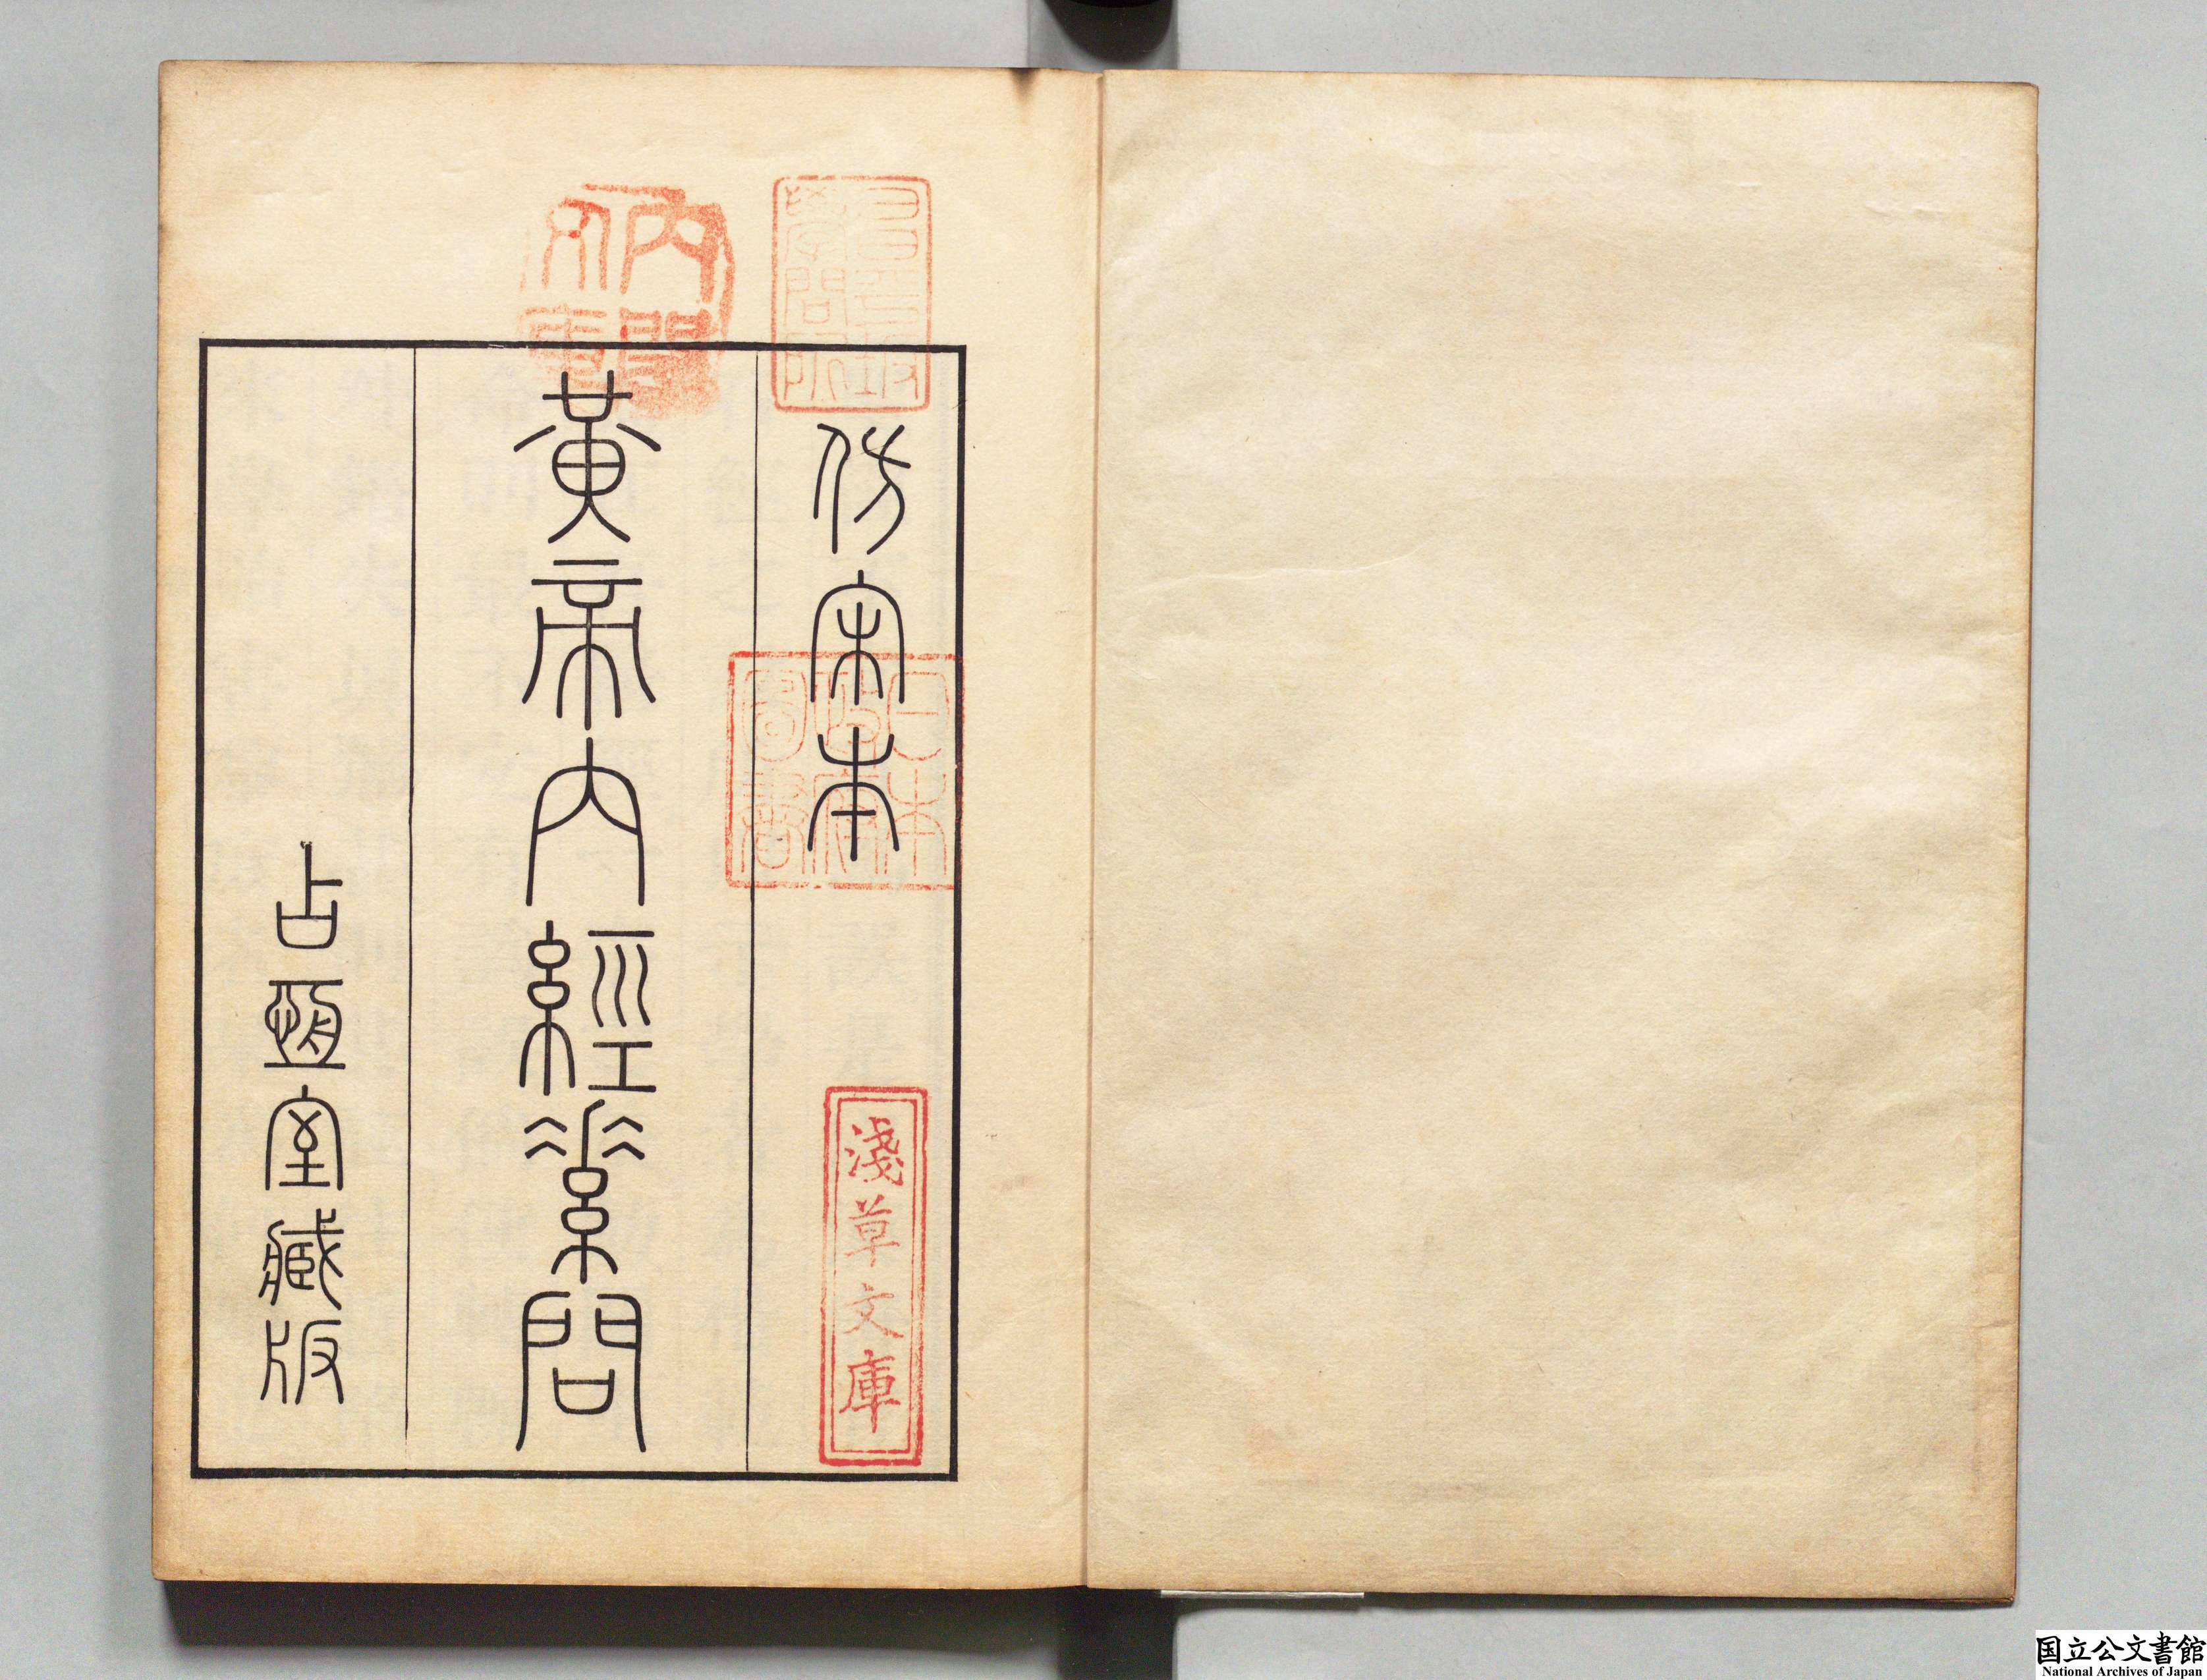 仿宋本
黃帝內經素問
占恆室臧版
昌平坂
學問所
內閣
文庫
日本
政府
圖書
淺草文庫
国立公文書館
National Archives of Japan